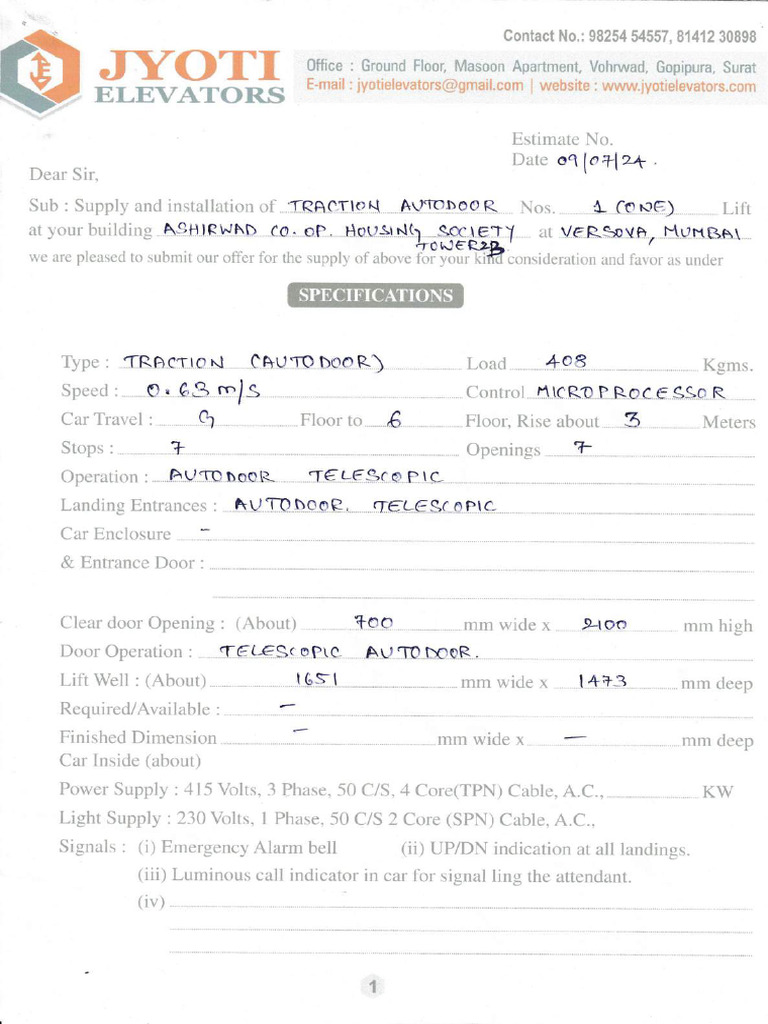 Contact No.: 98254 54557, 81412 30898
JYOTI
ELEVATORS
Office : Ground Floor, Masoon Apartment, Vohrwad, Gopipura, Surat
E-mail : jyotielevators@gmail.com | website : www.jyotielevators.com
Estimate No.
Date 09/07/24.
Dear Sir,
Sub : Supply and installation of TRACTION AUTODOOR Nos. 1 (ONE) Lift
at your building ASHIRWAD CO. OP. HOUSING SOCIETY at VERSOVA, MUMBAI
TOWER2B
we are pleased to submit our offer for the supply of above for your kind consideration and favor as under
SPECIFICATIONS
Type : TRACTION (AUTODOOR) Load 408 Kgms.
Speed : 0.63 m/s Control MICROPROCESSOR
Car Travel : G Floor to 6 Floor, Rise about 3 Meters
Stops : 7 Openings 7
Operation : AUTODOOR TELESCOPIC
Landing Entrances : AUTODOOR. TELESCOPIC
Car Enclosure -
& Entrance Door :
Clear door Opening : (About) 700 mm wide x 2100 mm high
Door Operation : TELESCOPIC AUTODOOR.
Lift Well : (About) 1651 mm wide x 1473 mm deep
Required/Available : -
Finished Dimension - mm wide x - mm deep
Car Inside (about)
Power Supply : 415 Volts, 3 Phase, 50 C/S, 4 Core(TPN) Cable, A.C., KW
Light Supply : 230 Volts, 1 Phase, 50 C/S 2 Core (SPN) Cable, A.C.,
Signals : (i) Emergency Alarm bell (ii) UP/DN indication at all landings.
(iii) Luminous call indicator in car for signal ling the attendant.
(iv)
1